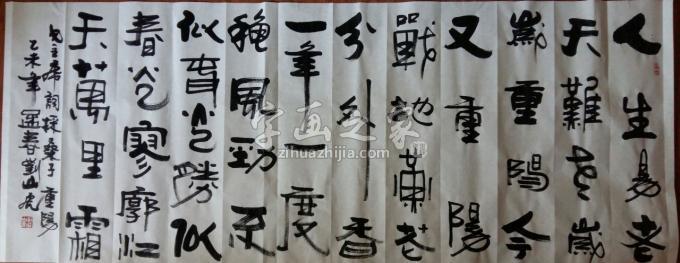 人生易老
天難老歲
歲重陽今
又重陽
戰地黃花
分外香
一年一度
穐風勁不
似春光勝似
春光寥廓江
天萬里霜
毛主席詞採桑子重陽
乙未年迎春劉山虎
字画之家
zihuazhijia.com